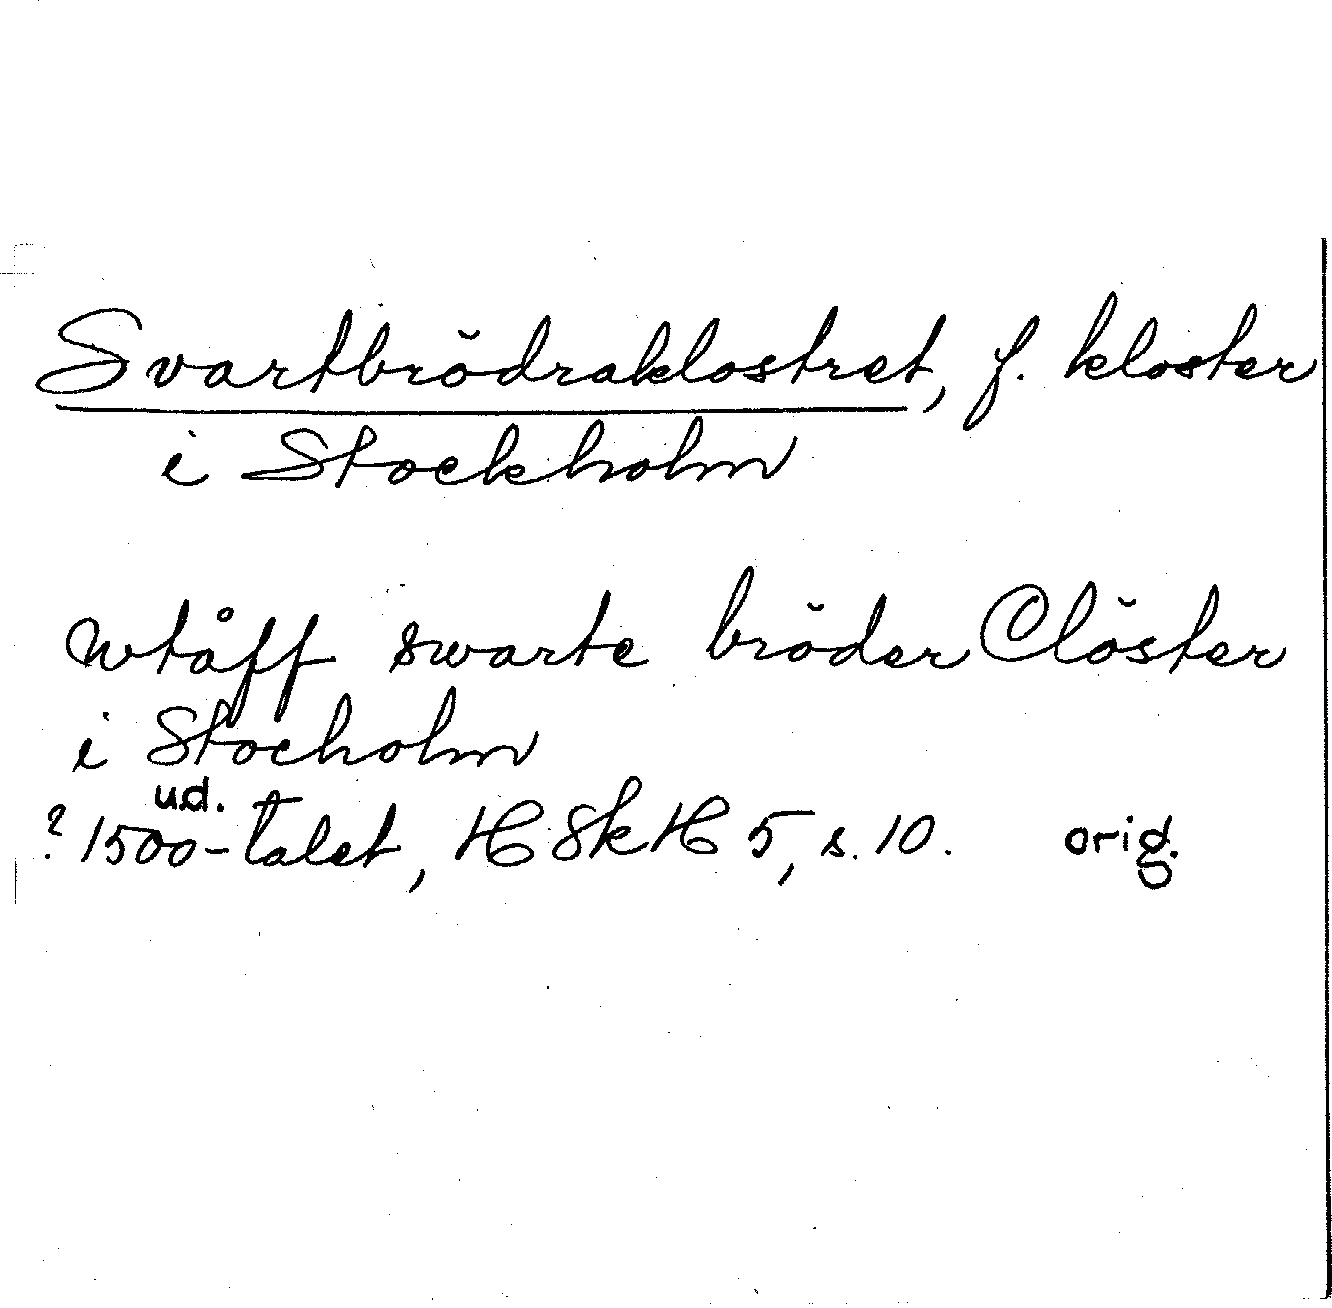 Svartbrödraklostret, f. kloster
i Stockholm
wtåff swarte bröder Clöster
i Stocholm
u.d.
? 1500-talet, HSkH 5, s. 10. orig.